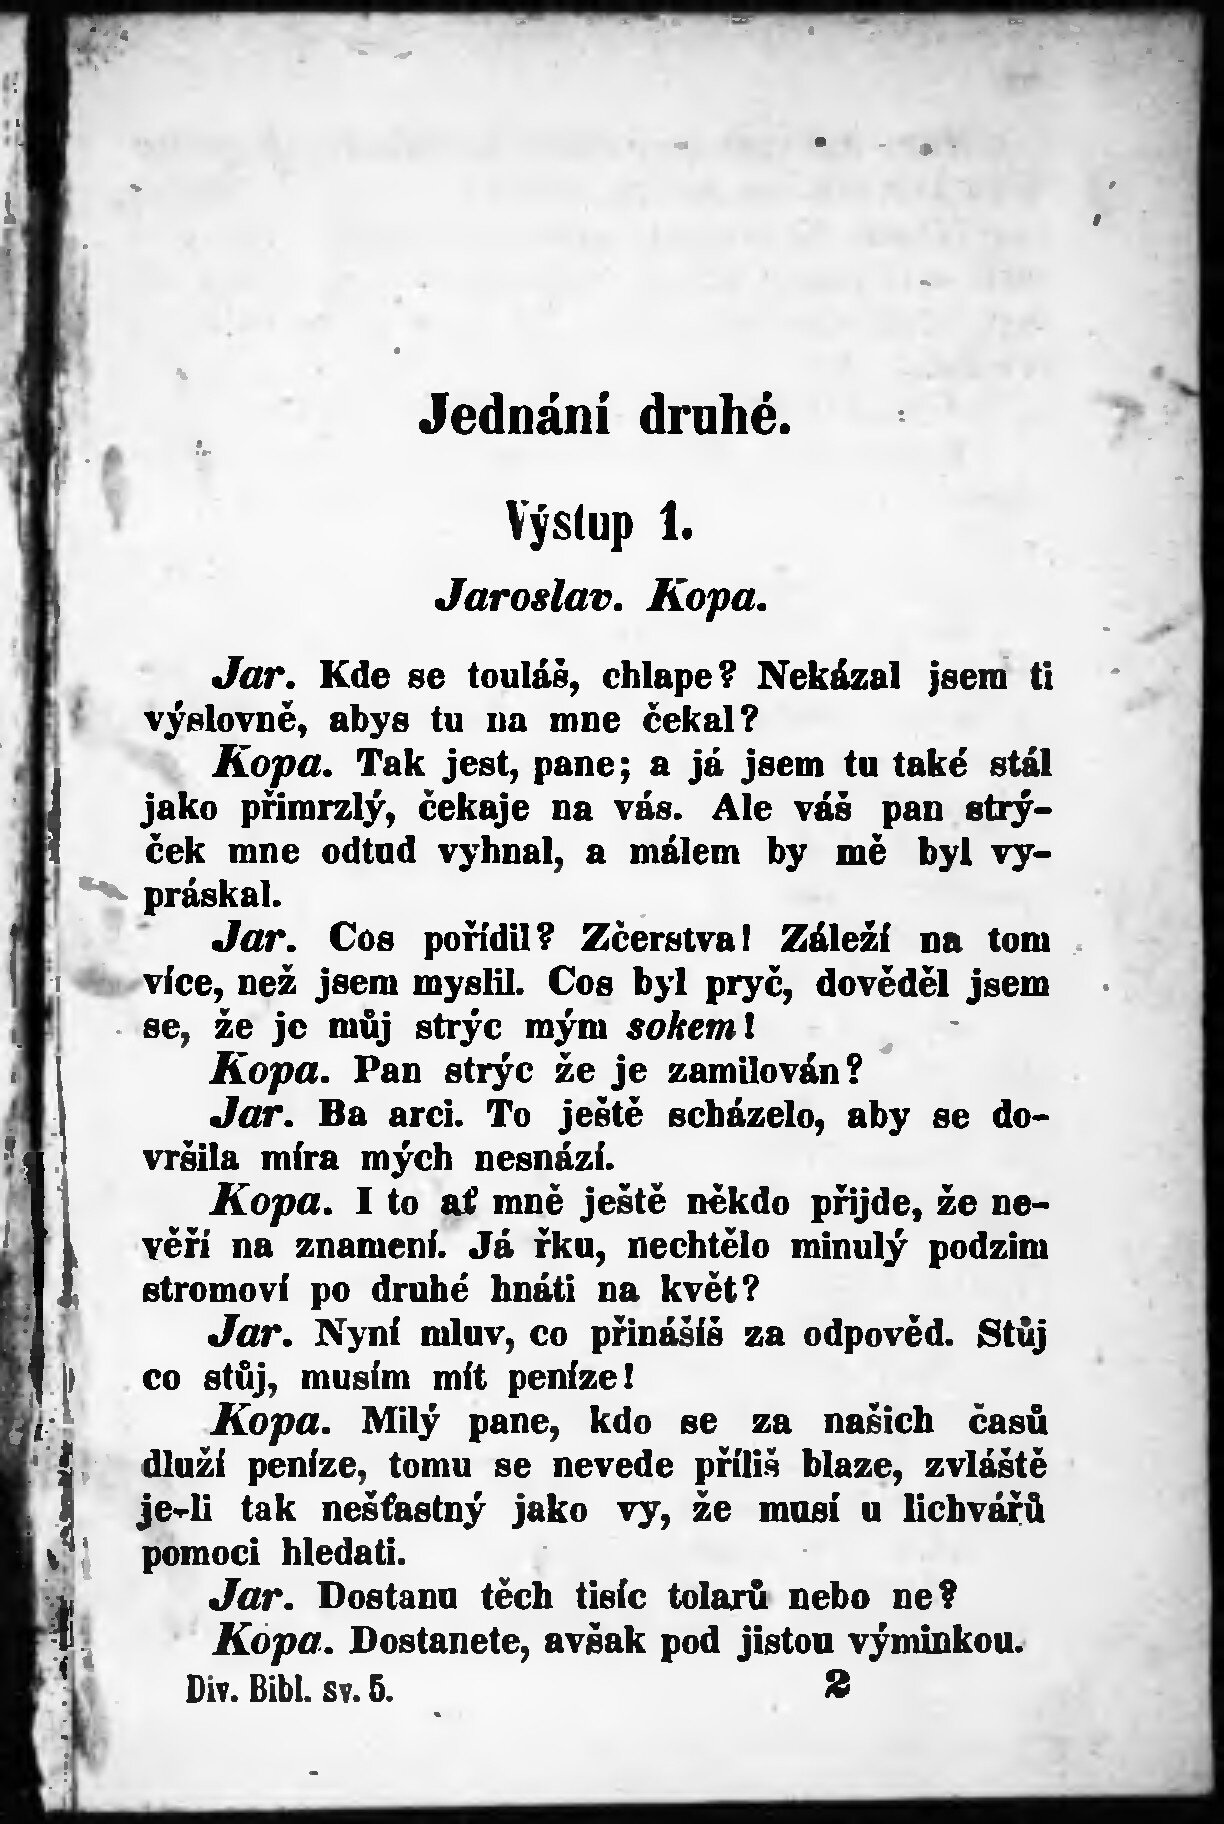 Jednání druhé.
Výstup 1.
Jaroslav. Kopa.
Jar. Kde se touláš, chlape? Nekázal jsem ti
výslovně, abys tu na mne čekal?
Kopa. Tak jest, pane; a já jsem tu také stál
jako přimrzlý, čekaje na vás. Ale váš pan strý-
ček mne odtud vyhnal, a málem by mě byl vy-
práskal.
Jar. Cos pořídil? Zčerstva! Záleží na tom
více, než jsem myslil. Cos byl pryč, dověděl jsem
se, že je můj strýc mým sokem!
Kopa. Pan strýc že je zamilován?
Jar. Ba arci. To ještě scházelo, aby se do-
vršila míra mých nesnází.
Kopa. I to ať mně ještě někdo přijde, že ne-
věří na znamení. Já řku, nechtělo minulý podzim
stromoví po druhé hnáti na květ?
Jar. Nyní mluv, co přinášíš za odpověd. Stůj
co stůj, musím mít peníze!
Kopa. Milý pane, kdo se za našich časů
dluží peníze, tomu se nevede příliš blaze, zvláště
je-li tak nešťastný jako vy, že musí u lichvářů
pomoci hledati.
Jar. Dostanu těch tisíc tolarů nebo ne?
Kopa. Dostanete, avšak pod jistou výminkou.
Div. Bibl. sv. 5. 2